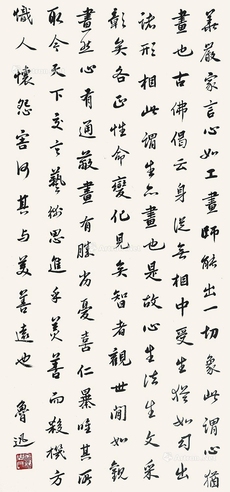 華嚴家言心如工畫師能出一切象此謂心猶
畫也古佛偈云身從無相中受生猶如幻出
諸形相此謂生亦畫也是故心生法生文采
彰矣各正性命變化見矣智者觀世間如觀
畫然心有通蔽畫有勝劣憂喜仁暴唯其所
取今天下交言藝術思進乎美善而殺機方
熾人懷怨害何其與美善遠也 魯迅